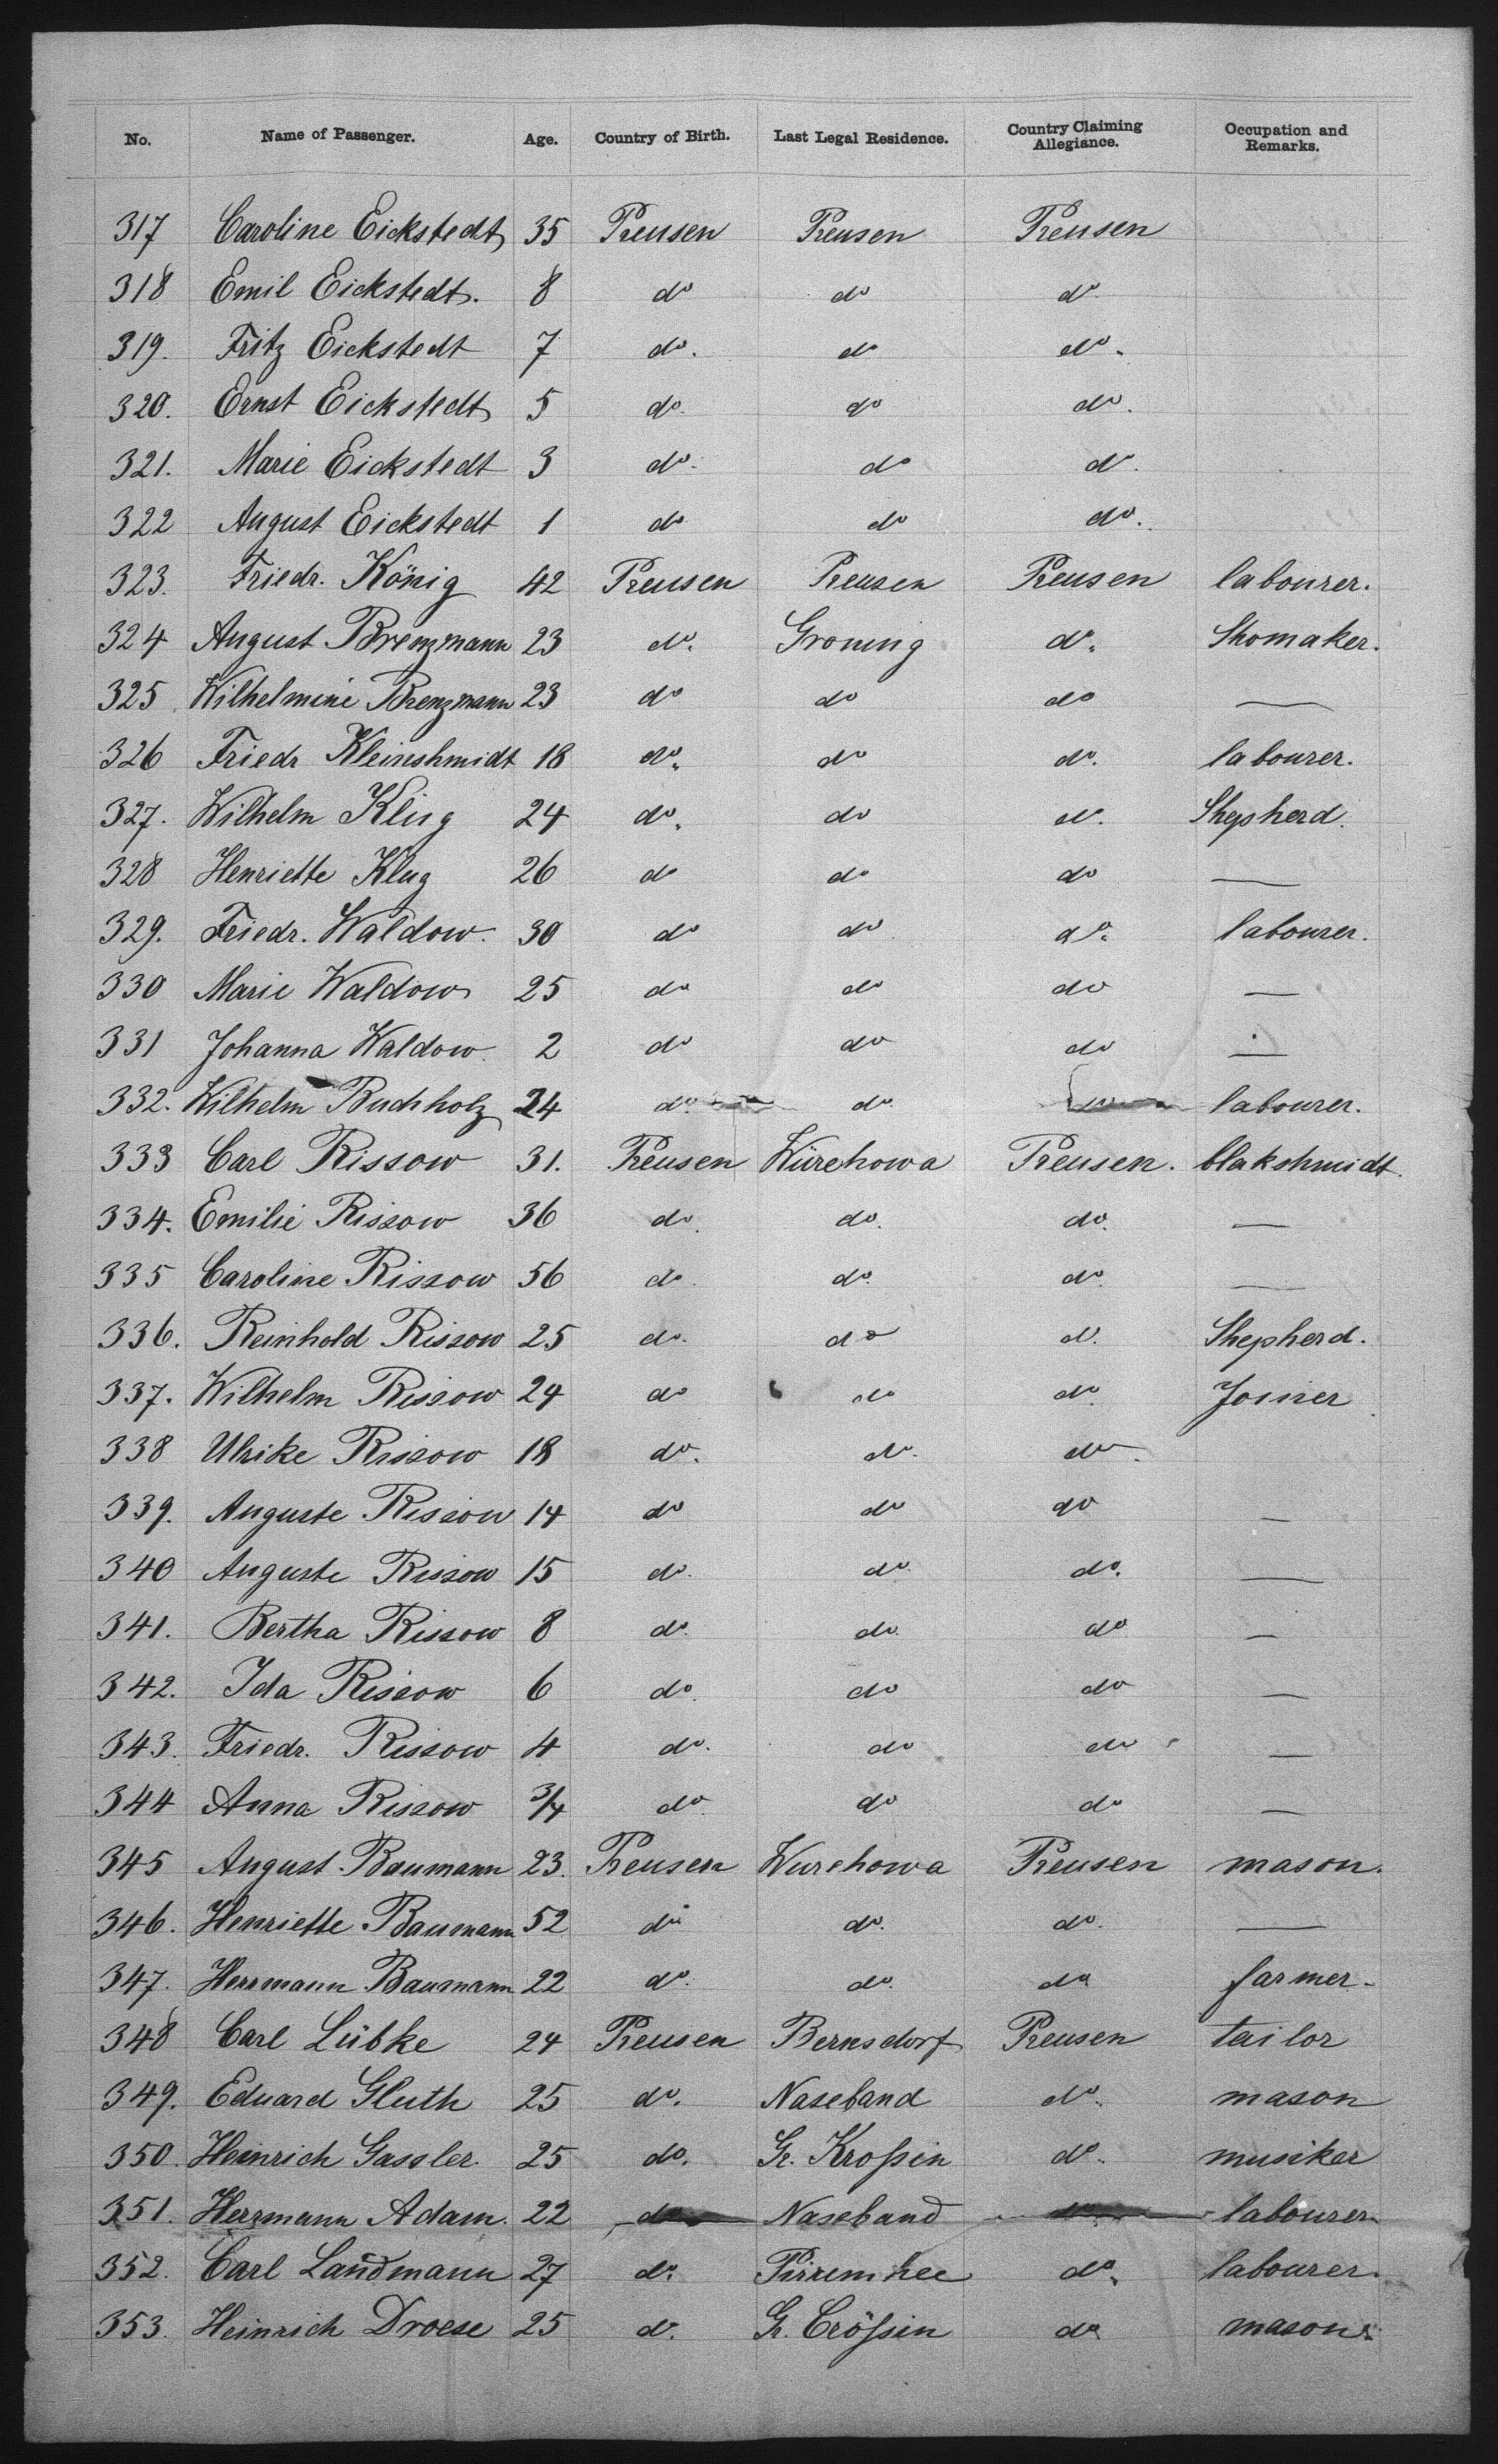 No. Name of Passenger. Age. Country of Birth. Last Legal Residence. Country Claiming Allegiance. Occupation and Remarks.
317 Caroline Eickstedt 35 Preusen Preusen Preusen
318 Emil Eickstedt. 8 do do do
319. Fritz Eickstedt 7 do. do do.
320. Ernst Eickstedt 5 do. do do.
321. Marie Eickstedt 3 do. do do.
322 August Eickstedt 1 do do do.
323. Friedr. König 42 Preusen Preusen Preusen labourer.
324 August Brenzmann 23 do. Groning do. Shomaker.
325 Wilhelmine Brenzmann 23 do do do —
326 Friedr Kleinshmidt 18 do. do do. labourer.
327. Wilhelm Klug 24 do. do do. Shepherd.
328 Henriette Klug 26 do do do —
329. Friedr. Waldow. 30 do do do. labourer.
330 Marie Waldow 25 do do do —
331 Johanna Waldow. 2 do do do —
332. Wilhelm Buchholz 24 do. do. do labourer.
333 Carl Rissow 31. Preusen Würchowa Preusen. blakshmidt.
334. Emilie Rissow 36 do. do. do. —
335 Caroline Rissow 56 do. do. do. —
336. Reinhold Rissow 25 do. do do. Shepherd.
337. Wilhelm Rissow 24 do do do. Joiner
338 Ulrike Rissow 18 do. do. do.
339. Auguste Rissow 14 do do do —
340 Auguste Rissow 15 do. do. do. —
341. Bertha Rissow 8 do. do. do —
342. Ida Rissow 6 do. do do —
343. Friedr. Rissow 4 do. do do —
344 Anna Rissow 3/4 do. do do —
345 August Baumann 23. Preusen Wurchowa Preusen mason.
346. Henriette Baumann 52 do do. do. —
347. Herrmann Baumann 22 do. do. do farmer.
348 Carl Lübke 24 Preusen Bernsdorf Preusen tailor
349. Eduard Gluth 25 do. Naseband do. mason
350. Heinrich Gassler. 25 do. Gr. Kroßin do. musiker
351. Herrmann Adam. 22 do Naseband do labourer.
352. Carl Landmann 27 do. do. labourer.
353. Heinrich Droese 25 do. Gr. Crößin do mason.